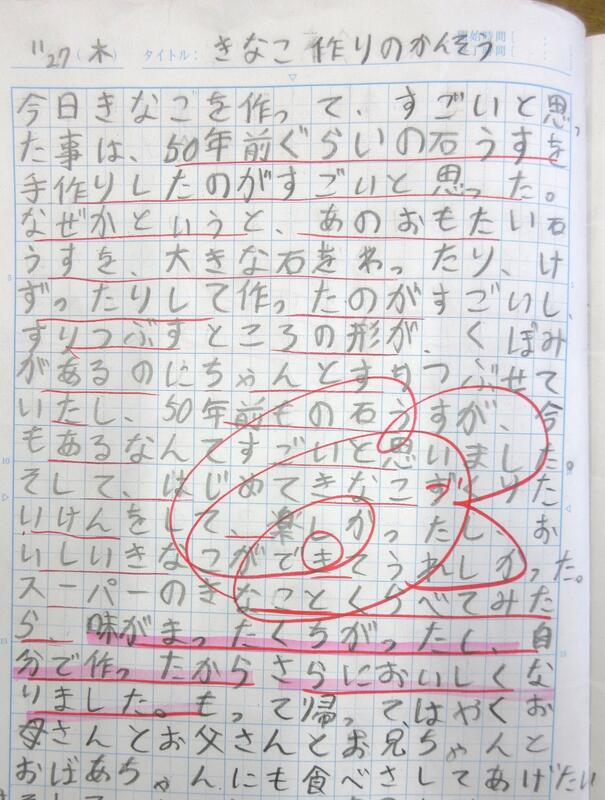 11/27(木) タイトル: きなこ作りのかんそう
開始時間[
了時間[
今日きなこを作って、すごいと思っ
た事は、50年前ぐらいの石うすを
手作りしたのがすごいと思った。
なぜかというと、あのおもたい石
うすを、大きな石をわったり、け
ずったりして作ったのがすごいし、
すりつぶすところの形が、くぼみ
があるのにちゃんとすりつぶせて
いたし、50年前もの石うすが、今
もあるなんてすごいと思いました。
そして、はじめてきなこずくりた
いけんをして、楽しかったし、お
いしいきなこができてうれしかった。
スーパーのきなことくらべてみた
ら、味がまったくちがったし、自
分で作ったからさらにおいしくな
りました。もって帰って、はやくお
母さんとお父さんとお兄ちゃんと
おばあちゃんにも食べさしてあげたい